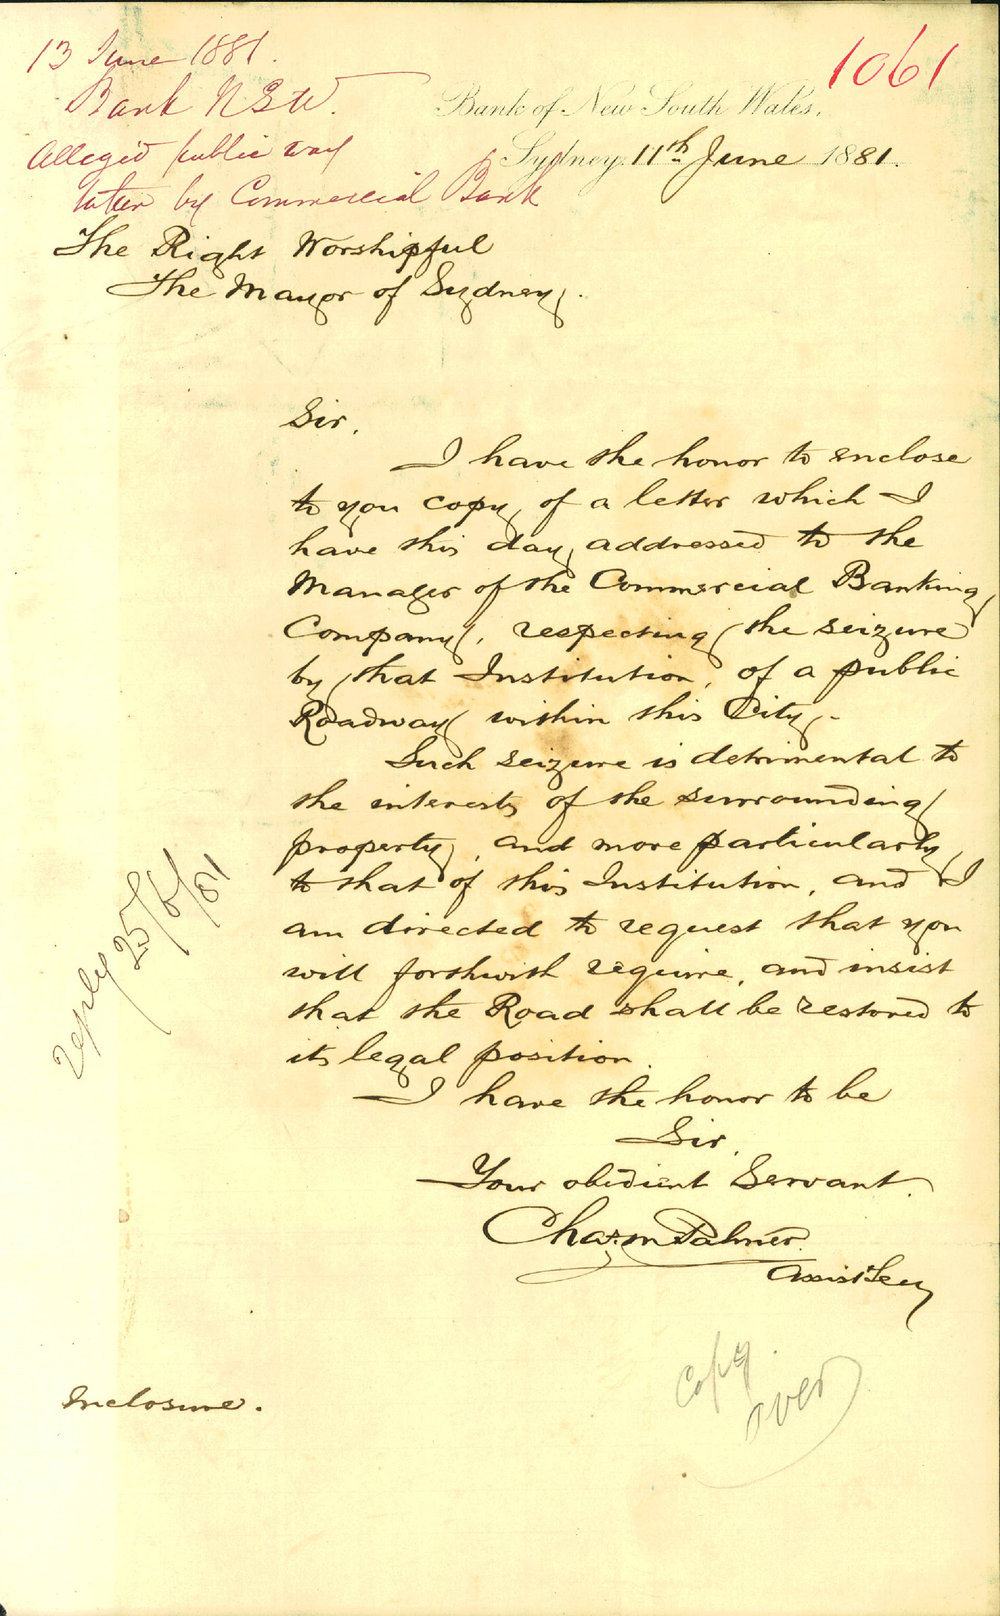 13 June 1881.
Bank NSW.
Alleged public way
taken by Commercial Bank
1061
Bank of New South Wales,
Sydney, 11th June 1881.
The Right Worshipful
The Mayor of Sydney.
Sir,
I have the honor to enclose
to you copy, of a letter which I
have this day, addressed to the
Manager of the Commercial Banking
Company, respecting the seizure
by that Institution, of a public
Roadway within this City.-
Such seizure is detrimental to
the interests of the surrounding
property, and more particularly
to that of this Institution, and I
am directed to request that you
will forthwith require, and insist
that the Road shall be restored to
its legal position.
I have the honor to be
Sir,
Your obedient Servant.
Chas. M Palmer.
Assist Secy
reply 25/6/81
Inclosure.
Copy
over